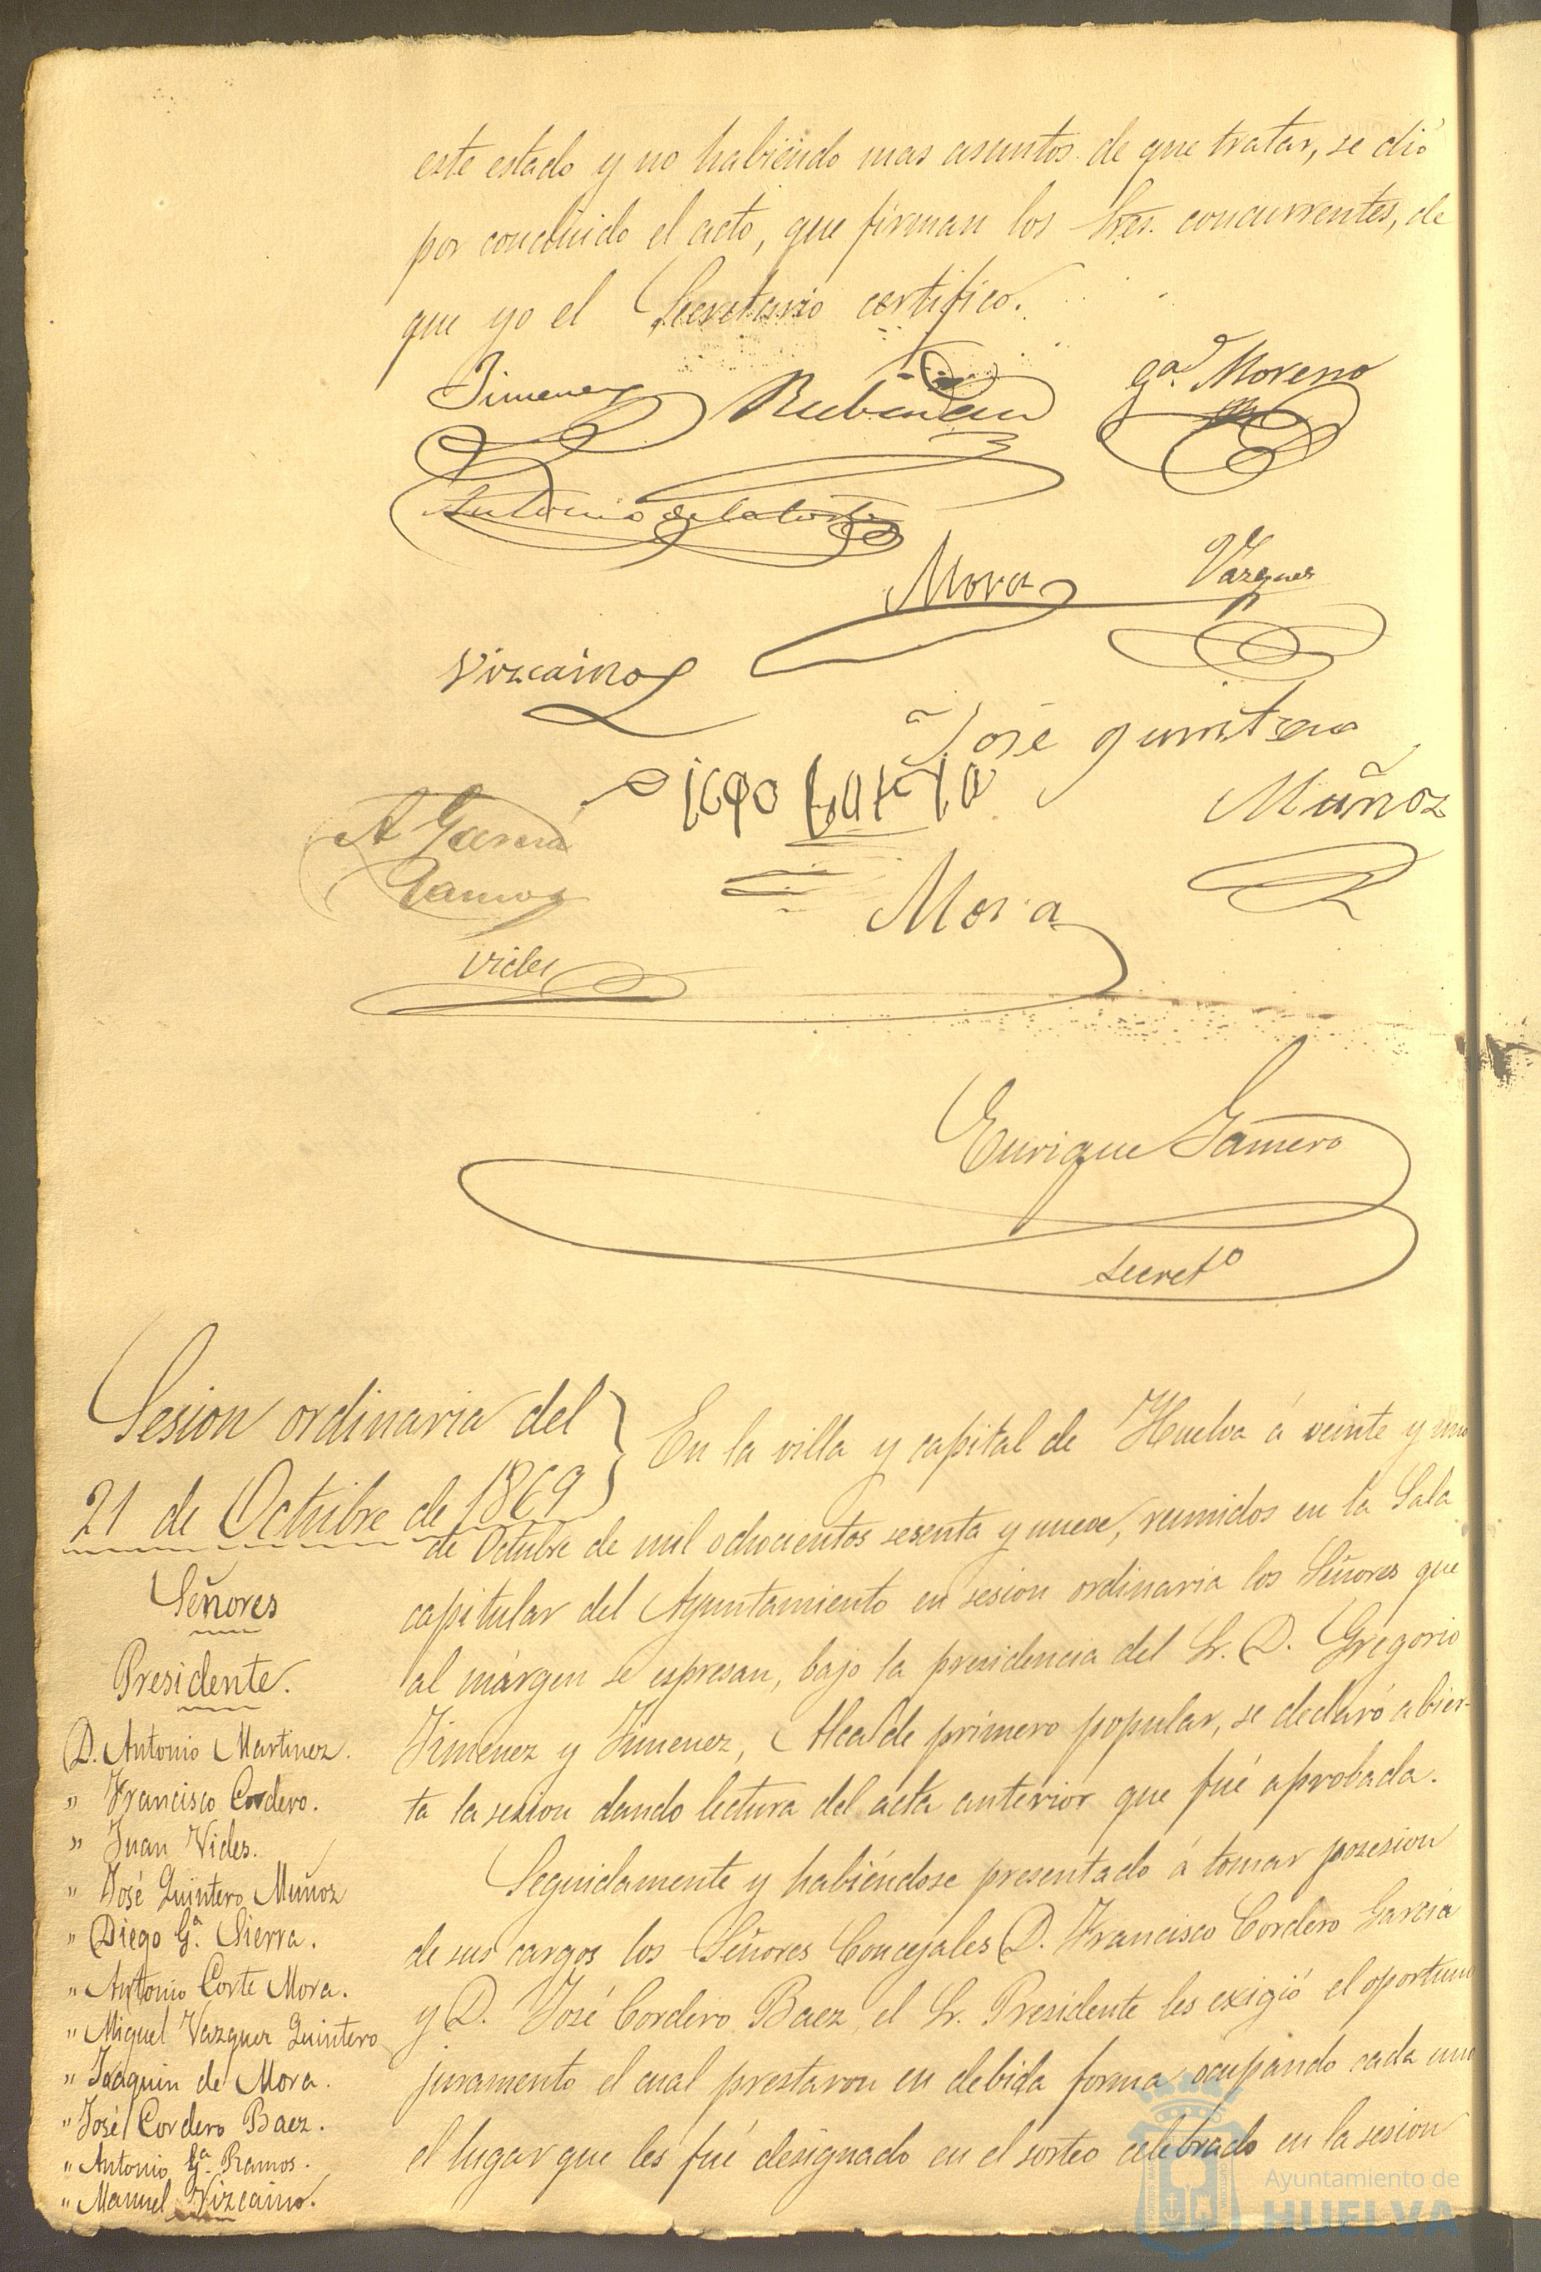 este estado y no habiendo mas asuntos de que tratar, se dió
por concluido el acto, que firman los Sres. concurrentes, de
que yo el Secretario certifico.
Jimenez
Gª. Moreno
Antonio de la Corte
Mora
Vazquez
Vizcaino
José Quintero
Diego Garcia
Muñoz
A Garcia
Ramos
Mora
Vides
Enrique Gamero
Secretº
Sesion ordinaria del
21 de Octubre de 1869
Señores
Presidente.
D. Antonio Martinez.
" Francisco Cordero.
" Juan Vides.
" José Quintero Muñoz
" Diego Gª. Sierra.
" Antonio Corte Mora.
" Miguel Vazquez Quintero
" Joaquin de Mora.
" José Cordero Baez.
" Antonio Gª. Ramos.
" Manuel Vizcaino.
En la villa y capital de Huelva á veinte y uno
de Octubre de mil ochocientos sesenta y nueve, reunidos en la Sala
capitular del Ayuntamiento en sesion ordinaria los Señores que
al márgen se espresan, bajo la presidencia del Sr. D. Gregorio
Jimenez y Jimenez, Alcalde primero popular, se declaró abier-
ta la sesion dando lectura del acta anterior que fué aprobada.
Seguidamente y habiéndose presentado á tomar posesion
de sus cargos los Señores Concejales D. Francisco Cordero Garcia
y D. José Cordero Baez el Sr. Presidente les exigió el oportuno
juramento el cual prestaron en debida forma ocupando cada uno
el lugar que les fué designado en el sorteo celebrado en la sesion
Ayuntamiento de
HUELVA